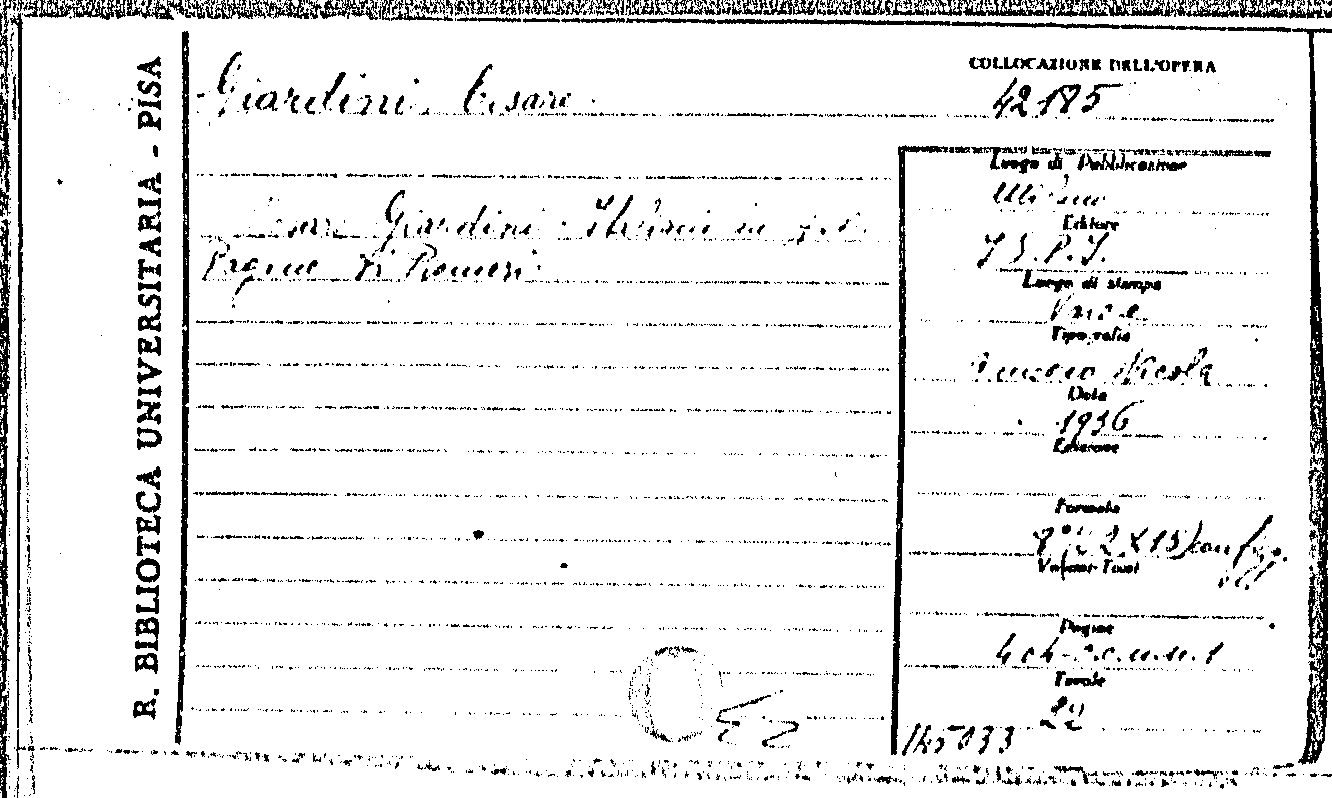 R. BIBLIOTECA UNIVERSITARIA - PISA
Giardini Cesare
COLLOCAZIONE DELL'OPERA
42185
Cesare Giardini. in
Luogo di Pubblicazione
Milano
Editore
I.S.P.I.
Luogo di stampa
Varese
Tipografia
Nicola
Data
1936
Edizione
Formato
8° (22X15) con figg.
Volumi-Tomi
Pagine
Tavole
22
145033